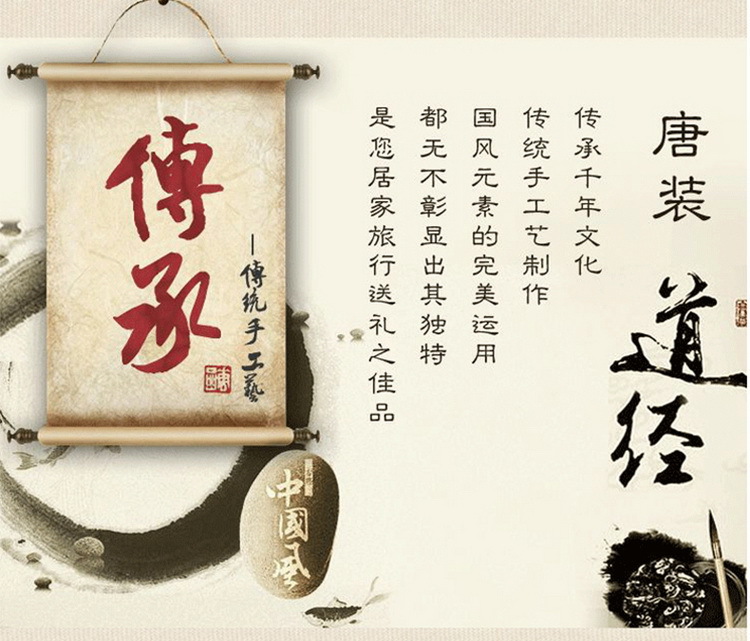 唐装
道经
传承千年文化
传统手工艺制作
国风元素的完美运用
都无不彰显出其独特
是您居家旅行送礼之佳品
傳承
－傳统手工藝
中國風